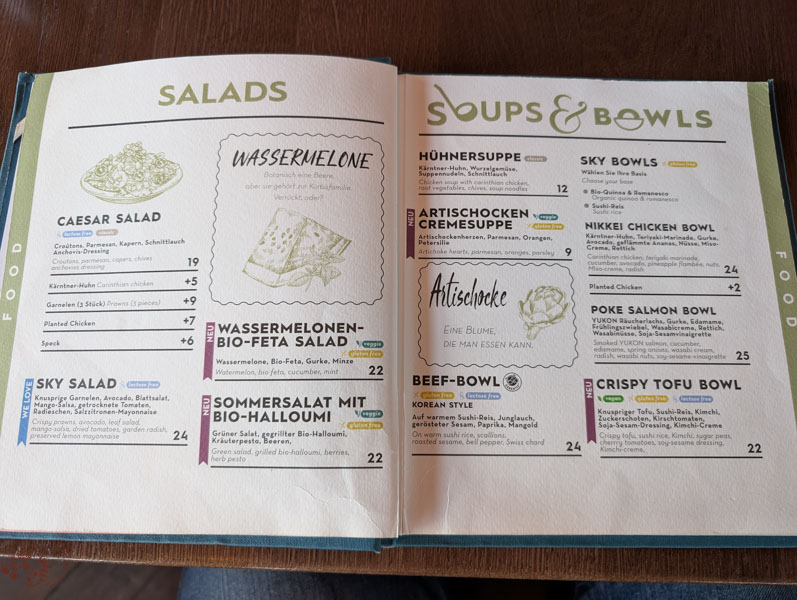 SALADS
CAESAR SALAD
lactose free classic
Croûtons, Parmesan, Kapern, Schnittlauch
Anchovis-Dressing
Croutons, parmesan, capers, chives
anchovies dressing
19
Kärntner-Huhn Carinthian chicken +5
Garnelen (3 Stück) Prawns (3 pieces) +9
Planted Chicken +7
Speck +6
WE LOVE
SKY SALAD lactose free
Knusprige Garnelen, Avocado, Blattsalat,
Mango-Salsa, getrocknete Tomaten,
Radieschen, Salzzitronen-Mayonnaise
Crispy prawns, avocado, leaf salad,
mango-salsa, dried tomatoes, garden radish,
preserved lemon mayonnaise
24
WASSERMELONE
Botanisch eine Beere,
aber sie gehört zur Kürbisfamilie.
Verrückt, oder?
NEU
WASSERMELONEN-
BIO-FETA SALAD veggie
gluten free
Wassermelone, Bio-Feta, Gurke, Minze
Watermelon, bio feta, cucumber, mint
22
NEU
SOMMERSALAT MIT
BIO-HALLOUMI veggie
gluten free
Grüner Salat, gegrillter Bio-Halloumi,
Kräuterpesto, Beeren,
Green salad, grilled bio-halloumi, berries,
herb pesto
22
FOOD
SOUPS & BOWLS
HÜHNERSUPPE classic
Kärntner-Huhn, Wurzelgemüse,
Suppennudeln, Schnittlauch
Chicken soup with carinthian chicken,
root vegetables, chives, soup noodles
12
NEU
ARTISCHOCKEN veggie
CREMESUPPE gluten free
Artischockenherzen, Parmesan, Orangen,
Petersilie
Artichoke hearts, parmesan, oranges, parsley
9
Artischocke
EINE BLUME,
DIE MAN ESSEN KANN.
BEEF-BOWL
gluten free lactose free
KOREAN STYLE
Auf warmem Sushi-Reis, Junglauch,
gerösteter Sesam, Paprika, Mangold
On warm sushi rice, scallions,
roasted sesame, bell pepper, Swiss chard
24
SKY BOWLS gluten free
Wählen Sie Ihre Basis
Choose your base
Bio-Quinoa & Romanesco
Organic quinoa & romanesco
Sushi-Reis
Sushi rice
NIKKEI CHICKEN BOWL
Kärntner-Huhn, Teriyaki-Marinade, Gurke,
Avocado, geflämmte Ananas, Nüsse, Miso-
Creme, Rettich
Carinthian chicken, teriyaki marinade,
cucumber, avocado, pineapple flambée, nuts,
Miso-creme, radish
24
Planted Chicken +2
POKE SALMON BOWL
YUKON Räucherlachs, Gurke, Edamame,
Frühlingszwiebel, Wasabicreme, Rettich,
Wasabinüsse, Soja-Sesamvinaigrette
Smoked YUKON salmon, cucumber,
edamame, spring onions, wasabi cream,
radish, wasabi nuts, soy-sesame-vinaigrette
25
NEU
CRISPY TOFU BOWL
vegan gluten free lactose free
Knuspriger Tofu, Sushi-Reis, Kimchi,
Zuckerschoten, Kirschtomaten,
Soja-Sesam-Dressing, Kimchi-Creme
Crispy tofu, sushi rice, Kimchi, sugar peas,
cherry tomatoes, soy-sesame dressing,
Kimchi-creme,
22
FOOD